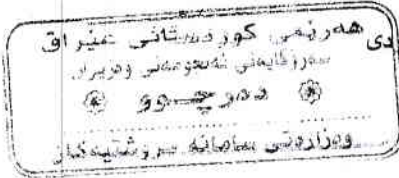 هەرێمی کوردستانی عێراق
سەرۆکایەتی ئەنجومەنی وەزیران
دەرچوو
وەزارەتی سامانە سروشتیەکان